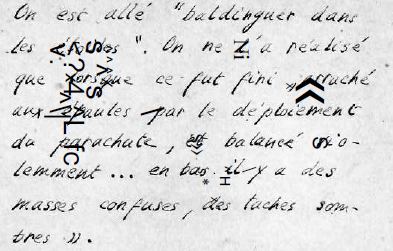 On est allé "baldinguer dans
les étoiles". On ne l'a réalisé
que lorsque ce fut fini, arraché
aux épaules par le déploiement
du parachute, et balancé vio-
lemment... en bas il y a des
masses confuses, des taches som-
bres ».